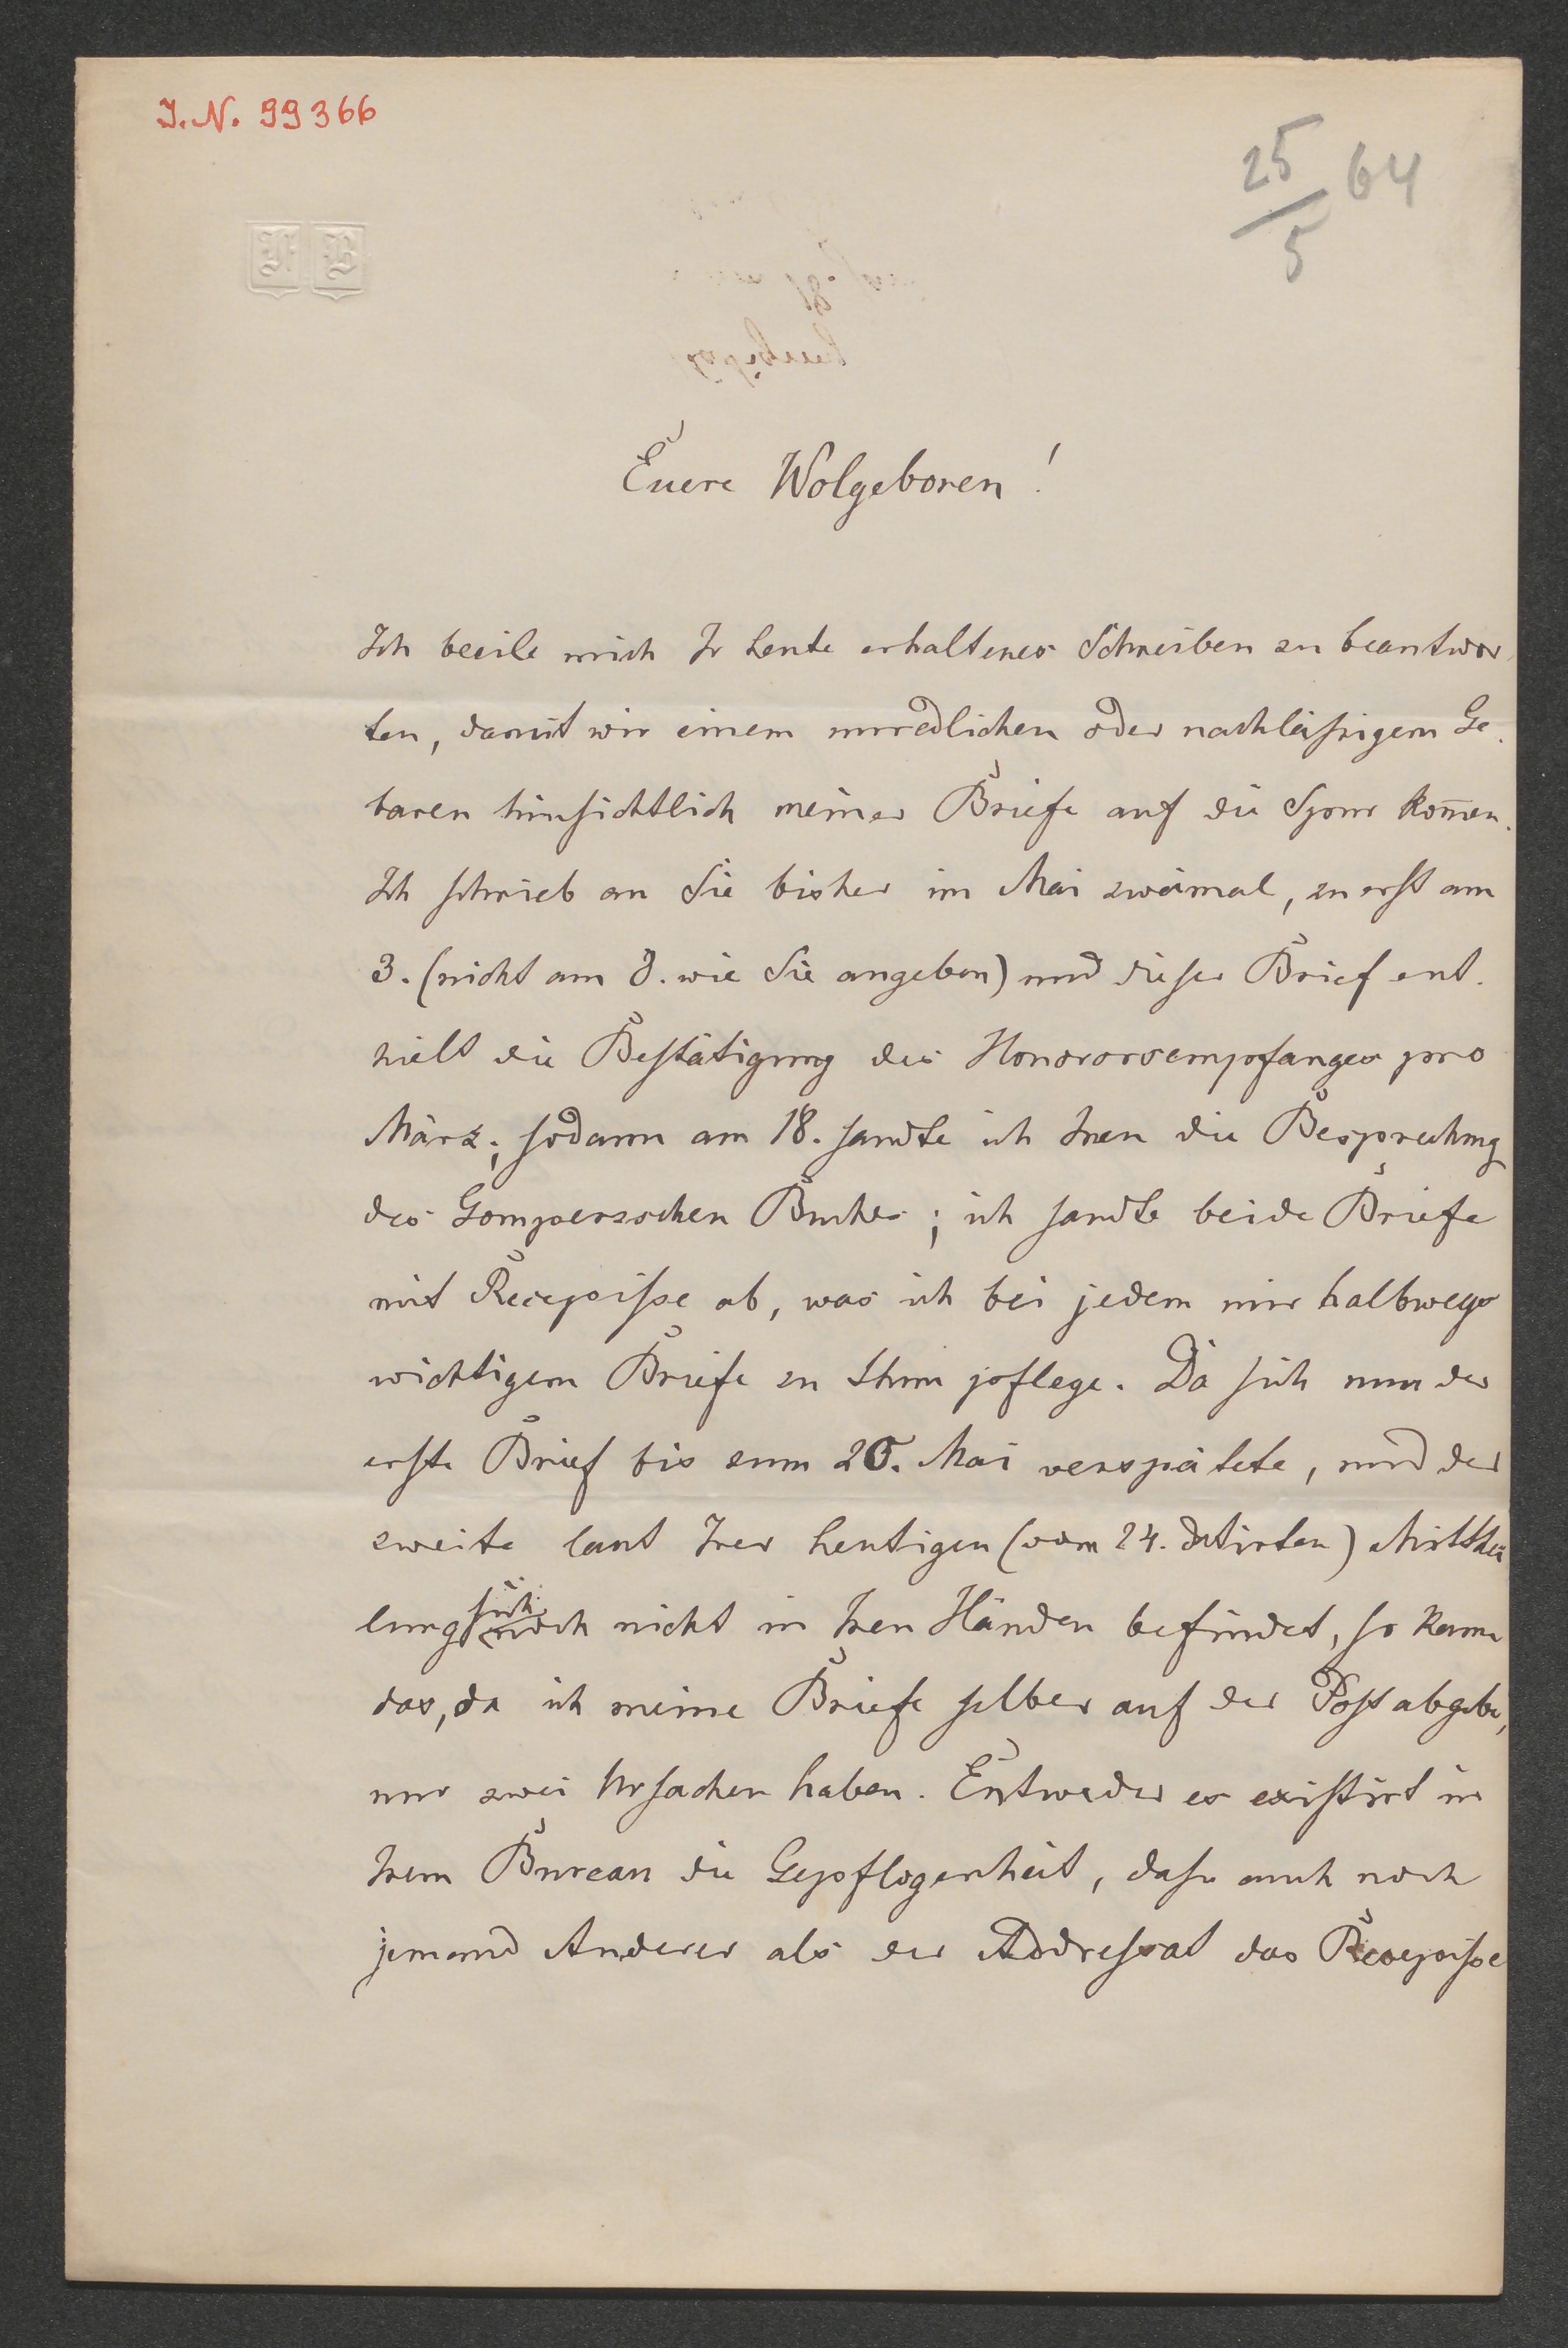 I.N. 99366
25/5 64
Euere Wolgeboren!
Ich beeile mich Ir heute erhaltenes Schreiben zu beantwor
ten, damit wir einem unredlichen oder nachläßigem Ge-
baren hinsichtlich meiner Briefe auf die Spur kom̄en.
Ich schrieb an Sie bisher im Mai zweimal, zu erst am
3. (nicht am 8. wie Sie angeben) und dieser Brief ent-
hielt die Bestätigung des Honorarsempfanges pro
März; sodann am 18. sandte ich Inen die Besprechung
des Gomperzschen Buches; ich sandte beide Briefe
mit Recepisse ab, was ich bei jedem mir halbwegs
wichtigem Briefe zu thun pflege. Da sich nun der
erste Brief bis zum 20. Mai verspätete, und der
zweite laut Irer heutigen (vom 24. datirten) Mitthei
lung sich noch nicht in Iren Händen befindet, so kann
das, da ich meine Briefe selber auf der Post abgebe,
nur zwei Ursachen haben. Entweder es existirt in
Irem Bureau die Gepflogenheit, dass auch noch
jemand Anderer als der Addressat das Recepisse